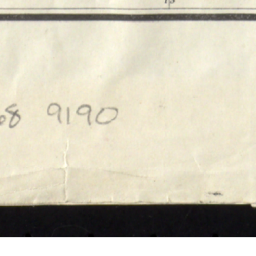 68 9190